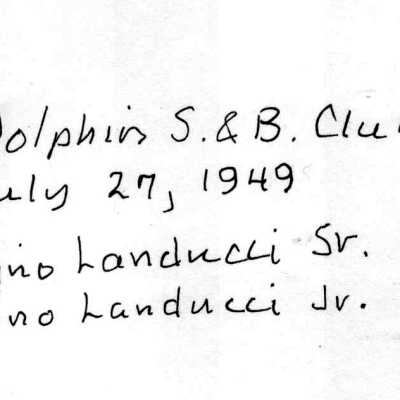 Dolphin S. & B. Clu
uly 27, 1949
ino Landucci Sr.
no Landucci Jr.